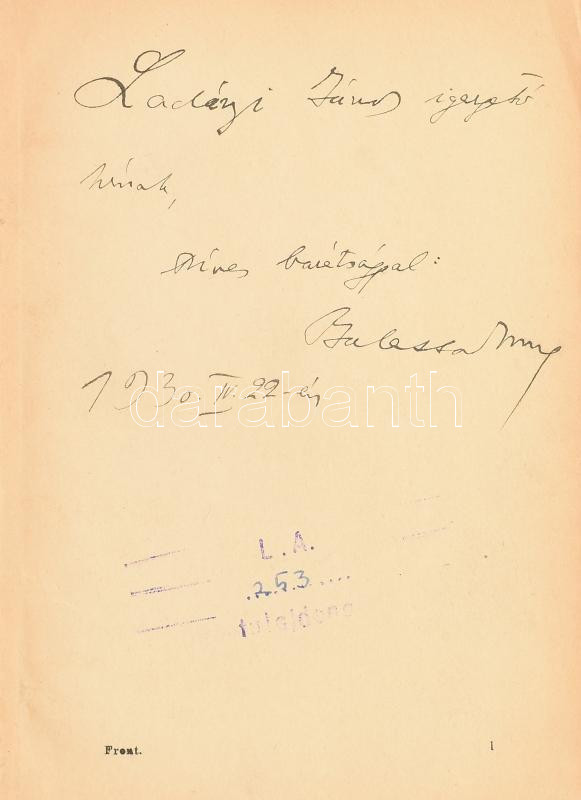 Ladányi János igazgató
úrnak,
szíves barátsággal:
Balassa Imre
1930. IV. 22-én
darabanth
L. A.
.253....
tulajdona
Front. 1